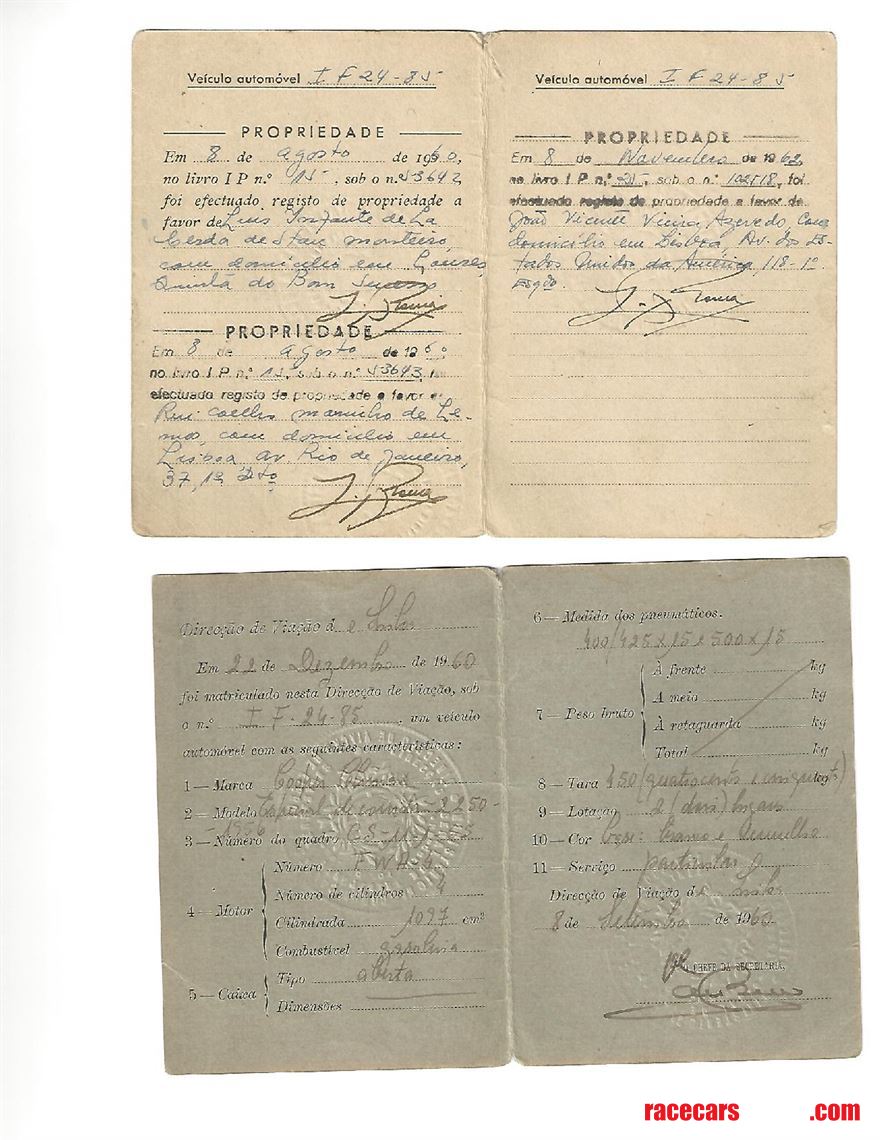 Veículo automóvel I F 24-85
PROPRIEDADE
Em 8 de agosto de 1960,
no livro I P n.º 15, sob o n.º 53642
foi efectuado, registo de propriedade a
favor de Luis Infante de La
Cerda de monteiro,
com domicilio em Loures,
Quinta do Bom
PROPRIEDADE
Em 8 de agosto de 1960
no livro I P n.º 15 sob o n.º 53643,
efectuado registo de propriedade a favor
Rui Coelho marinho de Le-
mos, com domicilio em
Lisboa av. Rio de Janeiro,
37, 1º Dto
Veículo automóvel I F 24-85
PROPRIEDADE
Em 8 de Novembro de 1962,
no livro I P n.º 25, sob o n.º 102518, foi
efectuado registo de propriedade a favor de
João Vicente Vieira Azevedo com
domicílio em Lisboa, Av. dos Es-
tados Unidos da América 118-1º
Esqdo.
Direcção de Viação de
Em 22 de Dezembro de 1960
foi matriculado nesta Direcção de Viação, sob
o n.º I F-24-85, um veículo
automóvel com as seguintes características:
1 — Marca Cooper Climax
2 — Modelo Especial de corrida-2250-
-1956
3 — Número do quadro CS-11-
4 — Motor
Número FWA-
Número de cilindros 4
Cilindrada 1097 cm³
Combustível gasolina
5 — Caixa
Tipo aberta
Dimensões
6 — Medida dos pneumáticos.
400/425x15 e 500x15
7 — Peso bruto
À frente kg
A meio kg
À rectaguarda kg
Total kg
8 — Tara 450 (quatrocentos e cinquenta)
9 — Lotação 2 (dois) lugares
10 — Cor branco e vermelho
11 — Serviço particular
Direcção de Viação de
8 de Setembro de 1960
O CHEFE DA SECRETARIA,
racecars .com